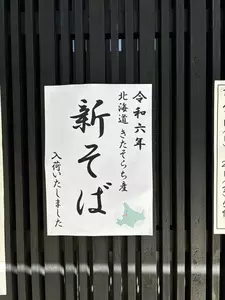 令和六年
北海道きたそらち産
新そば
入荷いたしました